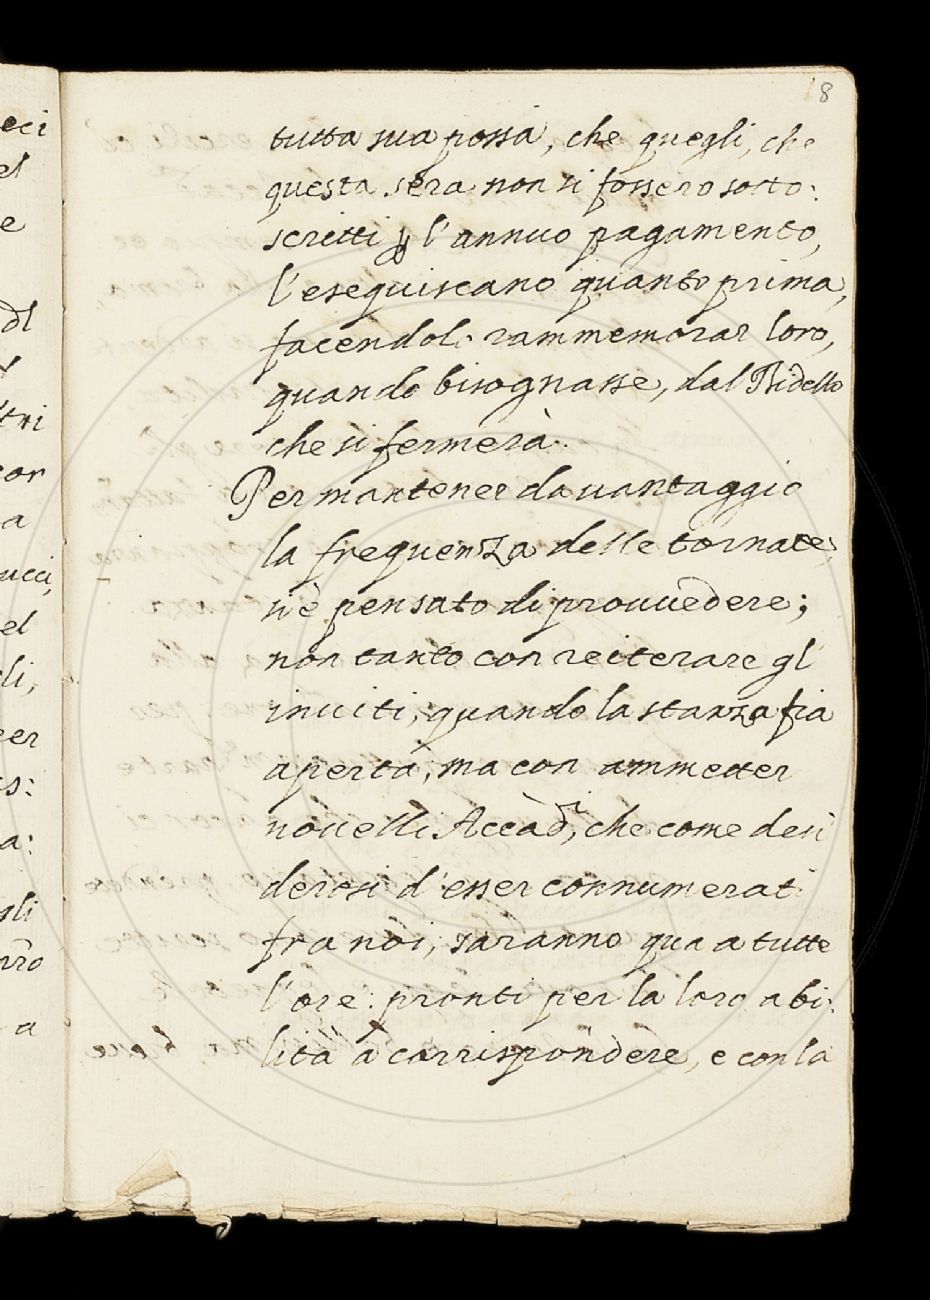 8
tutta sua possa, che quegli, che
questa sera non si fossero sotto:
scritti ꝑ l'annuo pagamento,
l'eseguiscano quanto prima,
facendolo rammemorar loro,
quando bisognasse, dal Bidello
che si fermerà.
Per mantener davantaggio
la frequenza delle tornate,
n'è pensato di provvedere;
non tanto con reiterare gl'
inviti, quando la stanza fia
aperta, ma con ammetter
novelli Accad:, che come desi
derosi d'esser connumerati
fra noi, saranno qua a tutte
l'ore pronti per la loro abi:
lità à corrispondere, e con la
eci
el
e
dl
tri
cor
a
ucci,
el
li,
er
s:
a:
gli
a